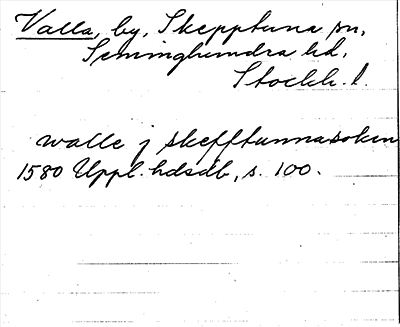 Valla, by, Skepptuna sn,
Seminghundra hd,
Stockh. l.
walle j skefftunnasoken
1580 Uppl. hdsdb, s. 100.